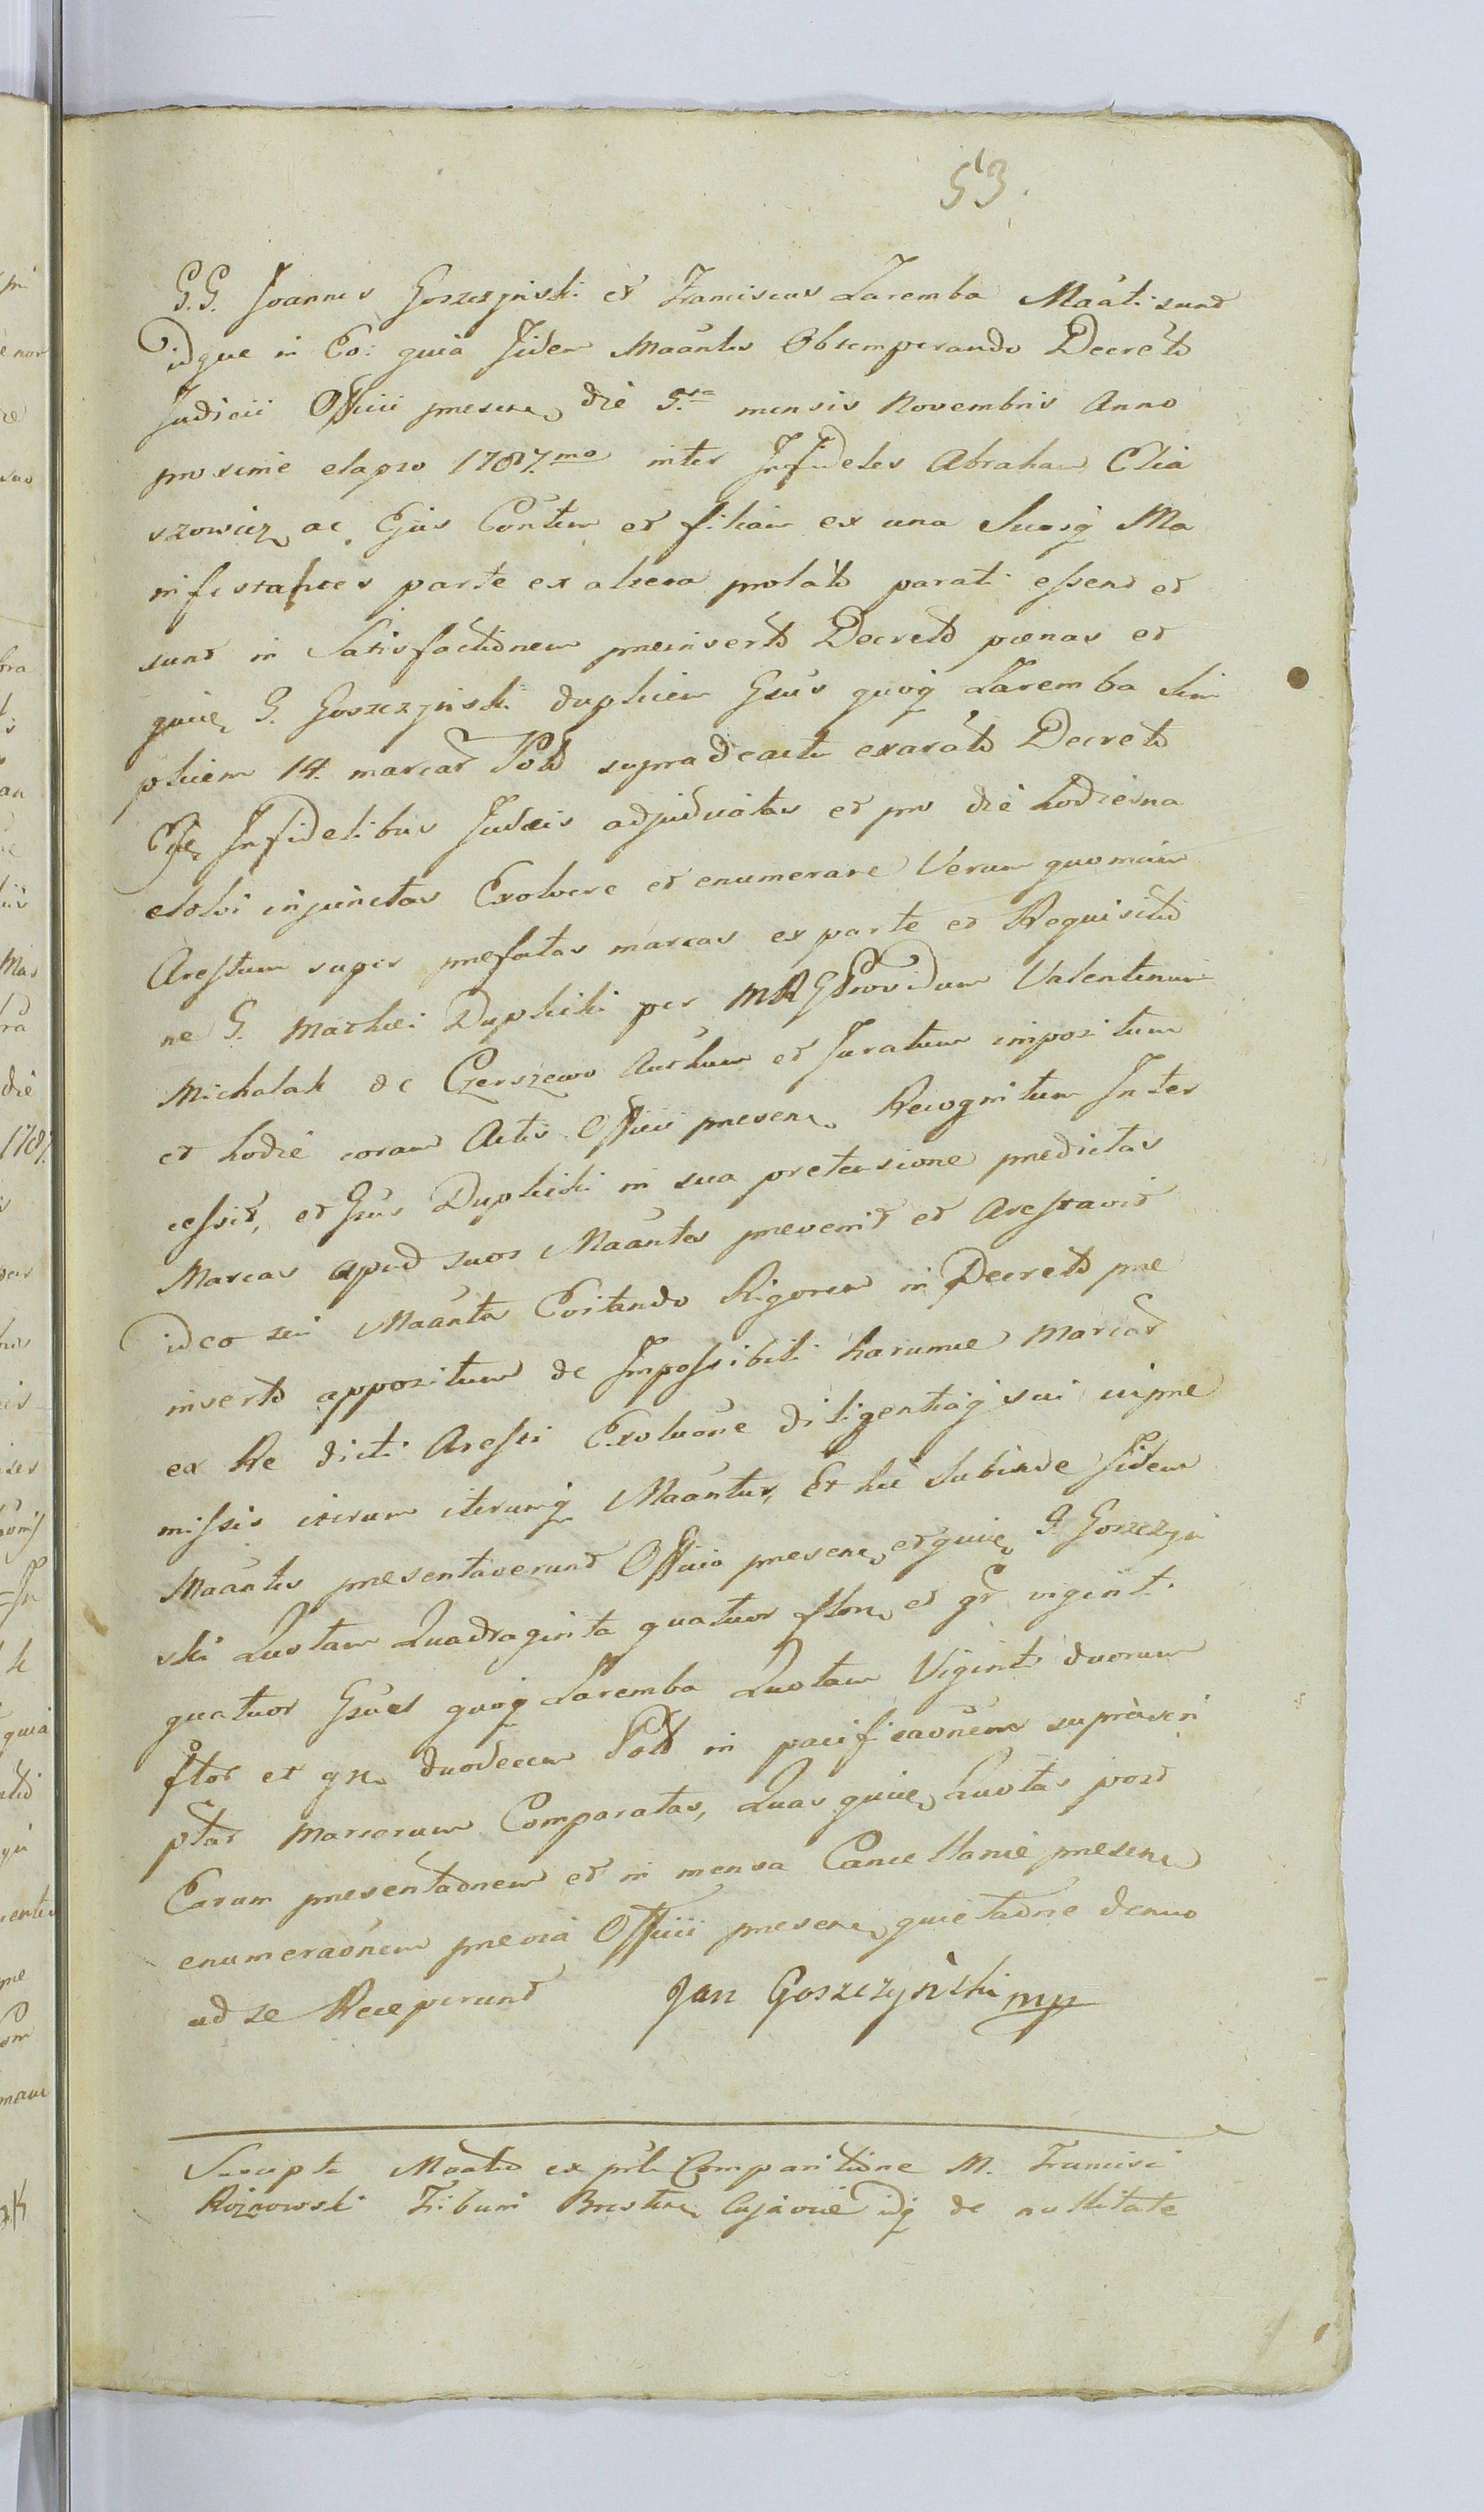 53.
G.G. Joannes Goszczynski et Franciscus Zaremba Maãti sunt
idque in Eo: quia Iidem Maãntes Obtemperando Decreto
Judicii Officii presen. die 5ta mensis Novembris Anno
proxime elapso 1787.mo inter Infideles Abraham Elia
szowicz ac Ejus Contem et filiam ex una Suosq Ma
nifestantes parte ex altera prolato parati essent et
sunt in Satisfactionem preinserti Decreti pœnas et
quie G. Goszczynski duplicem Gsus quoq Zaremba Sim
plicem 14. marcar Pol supra dicate exarato Decreto
Infidelibus Judæis adjudicatas et pro die hodierna
etolvi injunctas Exolvere et enumerare Verum quoniam
Arestum super prefatas marcas ex parte et Requisitio
ne G. Mathei Duplicki per MRG Providum Valentinum
Michalak de Czerszewo Authum et Juratum impositum
et hodie coram Actis Officii presen. Recognitum Inter
cessit, et Gsus Duplicki in sua pretensione predictas
Marcas apud suos Maãntes prevenit et Arestavit
ideo sui Maãntes Evitando Rigorem in Decreto pre
inserto appositum de Impossibili harumce Marcar
ex Re dicti Aresti Exoluõne diligentiaq sui in pre
missis iterum iterumq Maãntur, Et hic Subinde Iidem
Maãntes presentaverunt Officio presen. et quie G. Goszczyn
ski Quotam Quadraginta quatuor flor. et gr viginti
quatuor Gsus quoq Zaremba Quotam Viginti duorum
flor et gr. duodecem Pol in pacificaõnem suprascri
ptar Marcarum Comparatas, Quas quie Quotas post
Earum presentaõnem et in mensa Cancellarie presen
enumeraõnem previa Officii presen. quietaõne denuo
ad se Receperunt Jan Goszczyński mp
Suscepta Maatio ex prti Comparitione M. Francisci
Roznowski Tribuni Bresten. Cujavie idq de nullitate